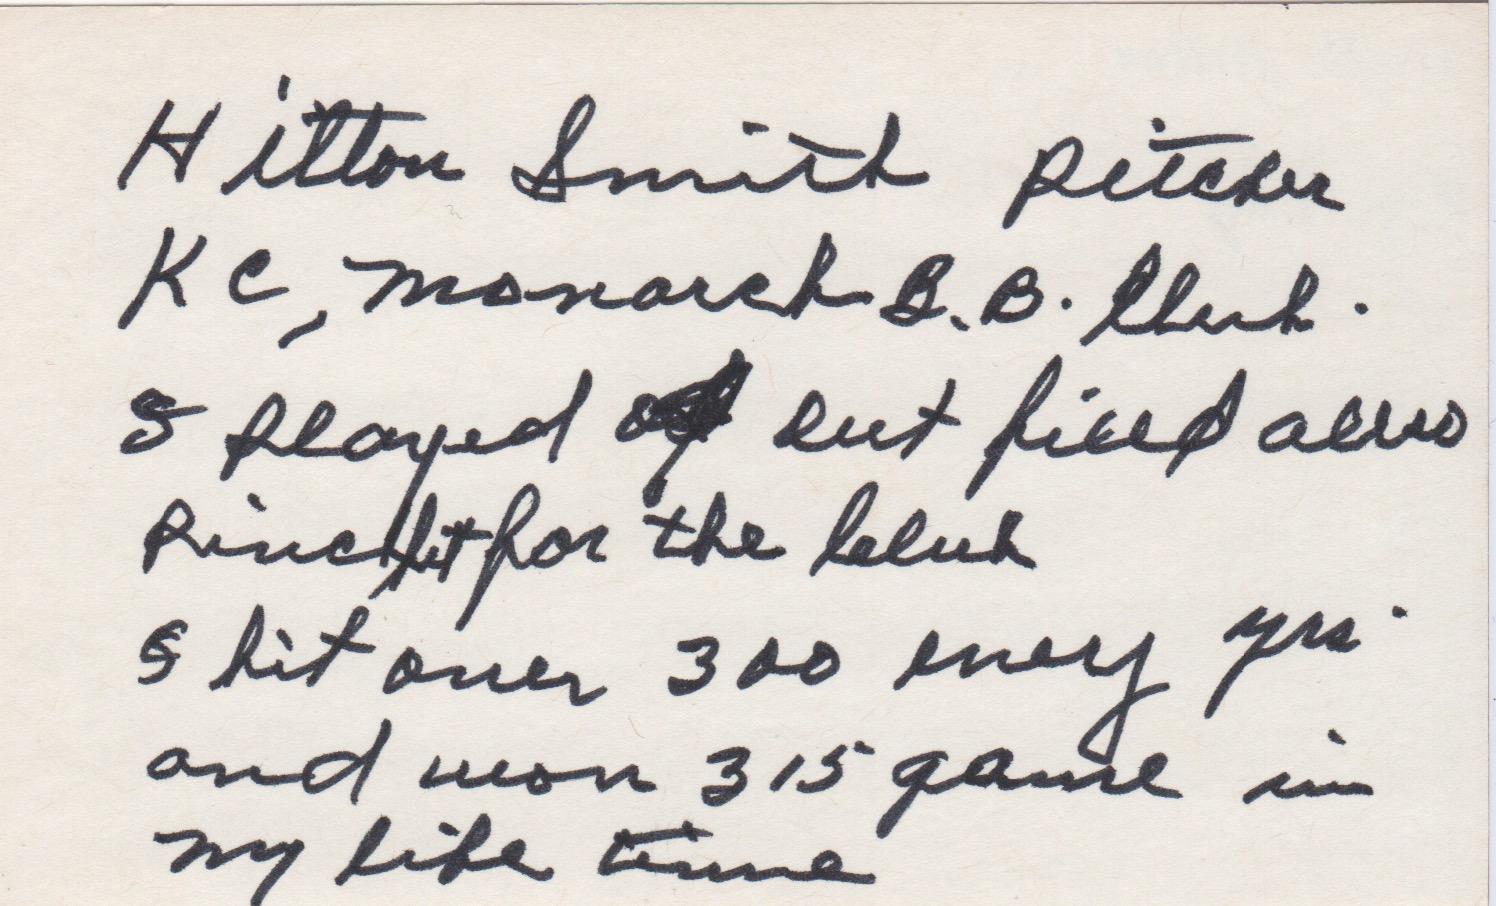 Hilton Smith pitcher
KC, Monarch B.B. Club.
I played out field also
Pinch hit for the club
I hit over 300 every yrs.
and won 315 game in
my life time